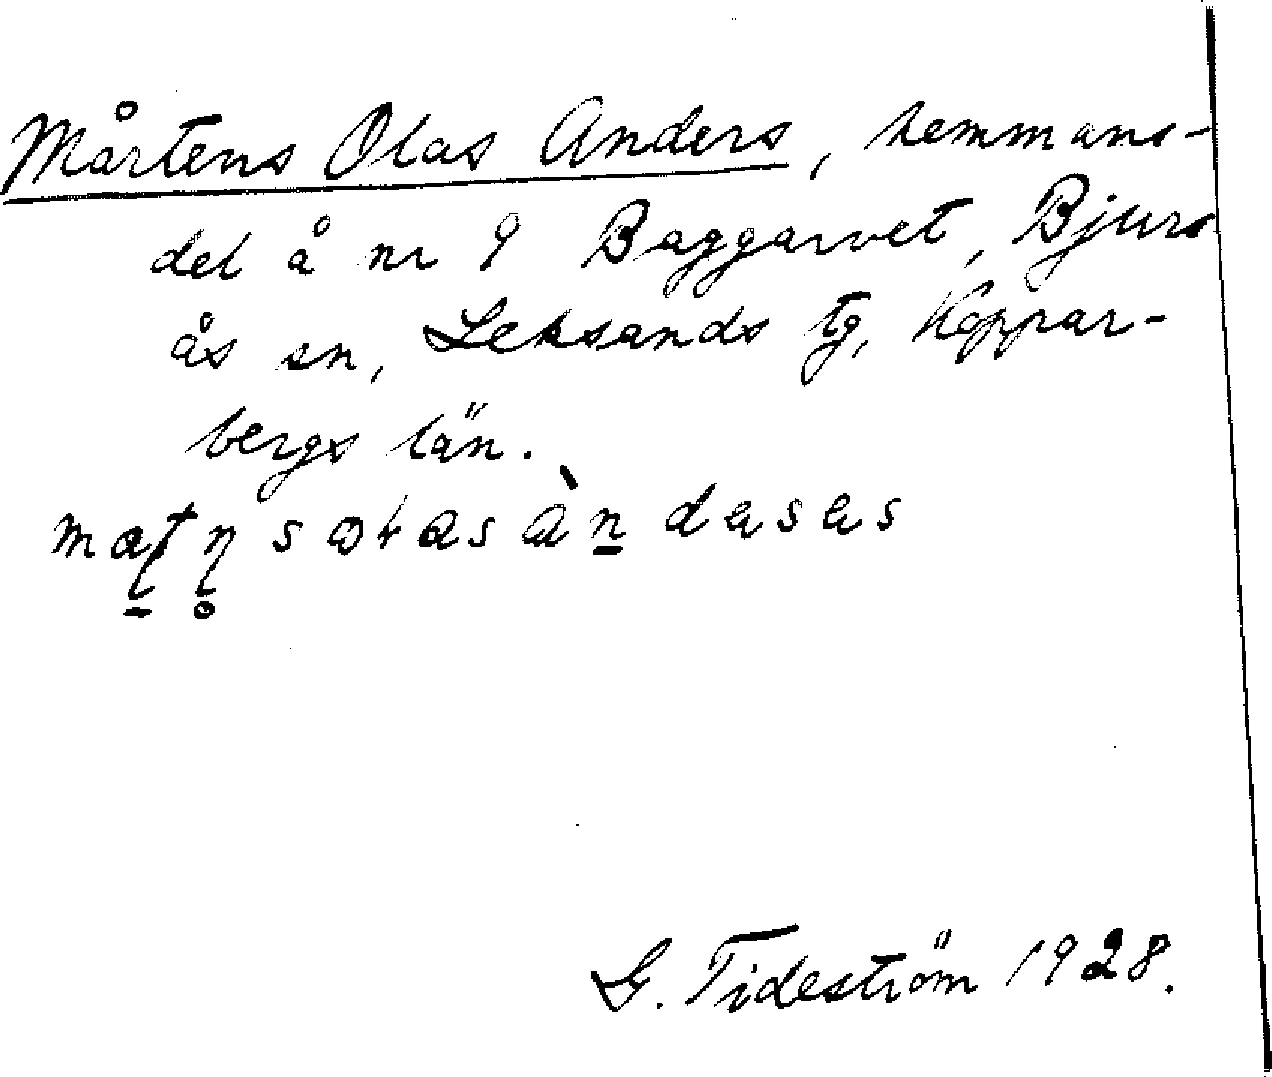 Mårtens Olas Anders, hemmans-
del å nr 9 Baggarvet, Bjurs
ås sn, Leksands tg, Koppar-
bergs län.
G. Tideström 1928.